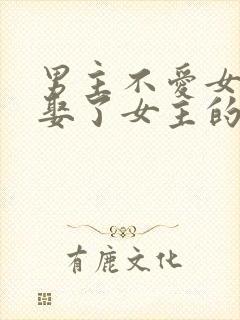 男主不愛女
娶了女主的
有鹿文化